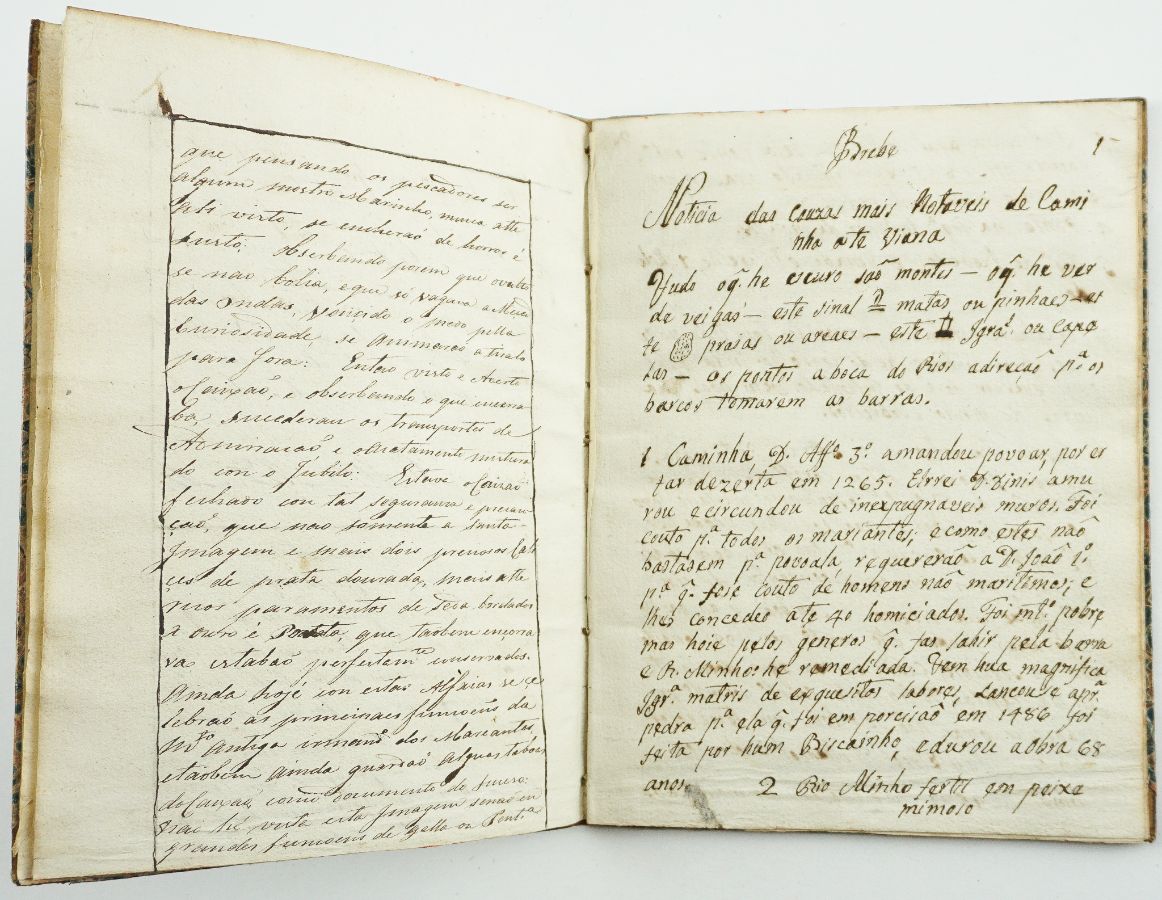 que pensando os pescadores ser
algum mostro Marinho, nunca athe
ali visto, se encheraõ de horror é
susto. Observando porem que o vulto
se nao bolia, e que só vagava a Merce
das Ondas, vencido o medo pella
Curiosidade, se animaraõ a tiralo
para fora: Entaõ visto e Averto
o Caixaõ, e observando o que encerra
ba, sucederaõ os transportes de
Admiracaõ, e altamente mistura
do con o Jubilo: Estava o Caixaõ
fechado con tal seguransa e precau
çaõ, que nao somente a santa
Imagem e mais dois preciosos Cali
ces de prata dourada, mais athe
ricos paramentos de Seda bordados
a ouro é Prata, que taobem encerra
va estabaõ perfeitemte. conservados.
Ainda hojé con estas Alfaias se çe
lebraõ as principaes funsoens da
Mto. antiga irmande. dos Mareantes,
e taobem ainda guardaõ alguas taboas
do Caixaõ, como documento do suceso:
nai hé vista esta Imagem senaõ em
grandes funsoens de Gella ou Penita.
Brebe 1
Noticia das Couzas mais Notaveis de Cami
nha ate Viana
Tudo oq̃. he escuro saõ montes — oq̃. he ver
de veigas — este sinal matas ou pinhaes — es
te prasas ou areaes — este Igra. ou Cape
las — os pontos a boca do Rios a direçaõ pa. os
barcos tomarem as barras.
1 Caminha, D. Affo. 3o. a mandou povoar, por es
tar dezerta em 1265. Elrrei D. Dinis amu
rou e circundou de inexpugnaveis muros. Foi
couto pa. todos os mariantes; e como estes naõ
bastasem pa. povoala, requereraõ a D. Joaõ 1o.
pa. q̃. fose couto de homens naõ maritimos; e
lhes concedeo até 40 homiciados. Foi mto. pobre
mas hoie pelos generos q̃. fas sahir pela barra
e R. Minho: he remediada. Tem huã magnifica
Igra. matris de exquesitos labores, Lanceu-se a pra.
pedra pa. ela q̃. foi em porcisaõ em 1486 foi
feita por hum Biscainho, e durou a obra 68
anos. 2 Rio Minho fertil em peixe
mimoso